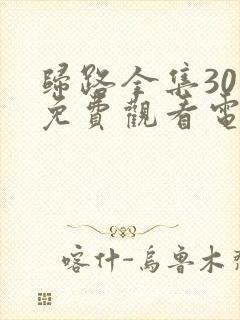 歸路全集30
免費觀看電
喀什-烏魯木齊